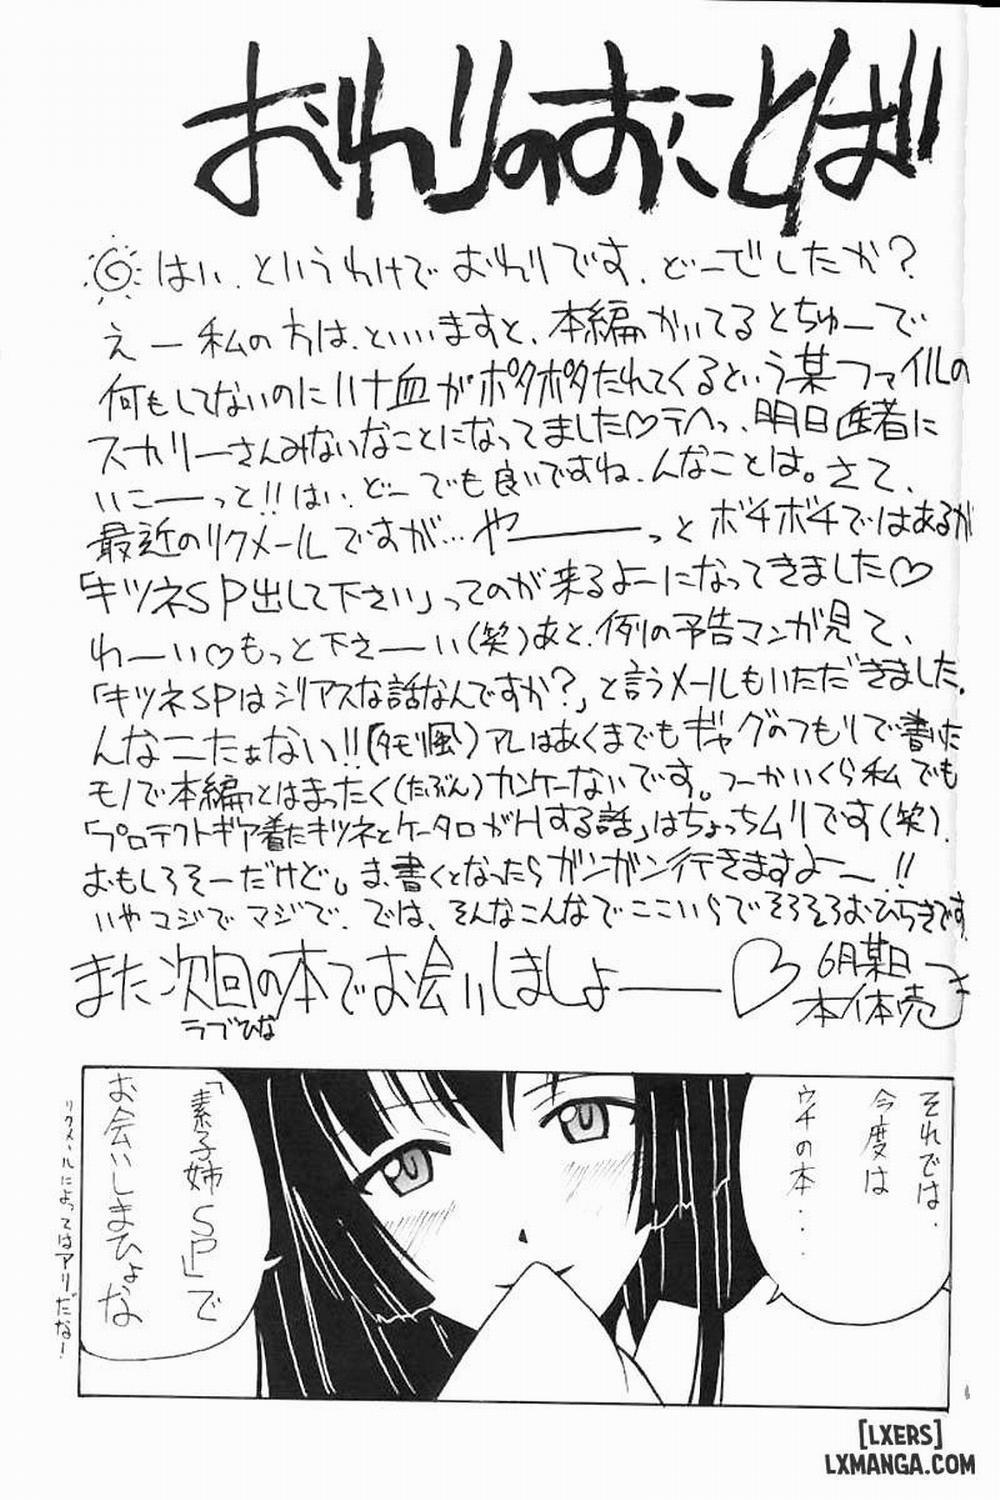 おわりのおことば
はい、というわけでおわりです。どーでしたか?
えー私の方は、といいますと、本編かいてるとちゅーで
何もしてないのにハナ血がポタポタたれてくるという某ファイルの
スカリーさんみたいなことになってました♡テヘっ、明日医者に
いこーーっと!!はい、どーでも良いですね、んなことは。さて、
最近のリクメールですが…やーーーっとボチボチではあるが
「キツネSP出して下さい」ってのが来るよーになってきました♡
わーい♡もっと下さーい(笑)あと、例の予告マンガ見て、
「キツネSPはシリアスな話なんですか?」と言うメールもいただきました。
んなこたぁない!!(タモリ風)アレはあくまでもギャグのつもりで書いた
モノで本編とはまったく(たぶん)カンケーないです。つーかいくら私でも
「プロテクトギア着たキツネとケータロがHする話」はちょっちムリです(笑)。
おもしろそーだけど。ま、書くとなったらガンガン行きますよー!!
いやマジでマジで。では、そんなこんなでここいらでそろそろおひらきです。
また次回の本でお会いしましょーーー♡
ラブひな
6月某日
本体売
それでは、
今度は
ウチの本・・・
「素子姉SP」で
お会いしまひょな
リクメールによってはアリだな!
[LXERS]
LXMANGA.COM